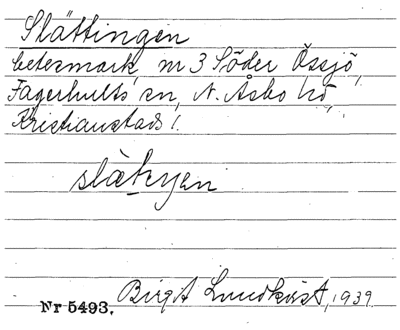 Slättingen
betesmark, nr 3 Söder Össjö,
Fagerhults sn, N. Åsbo hd,
Kristianstads l.
Nr 5493. Birgit Lundkvist, 1939